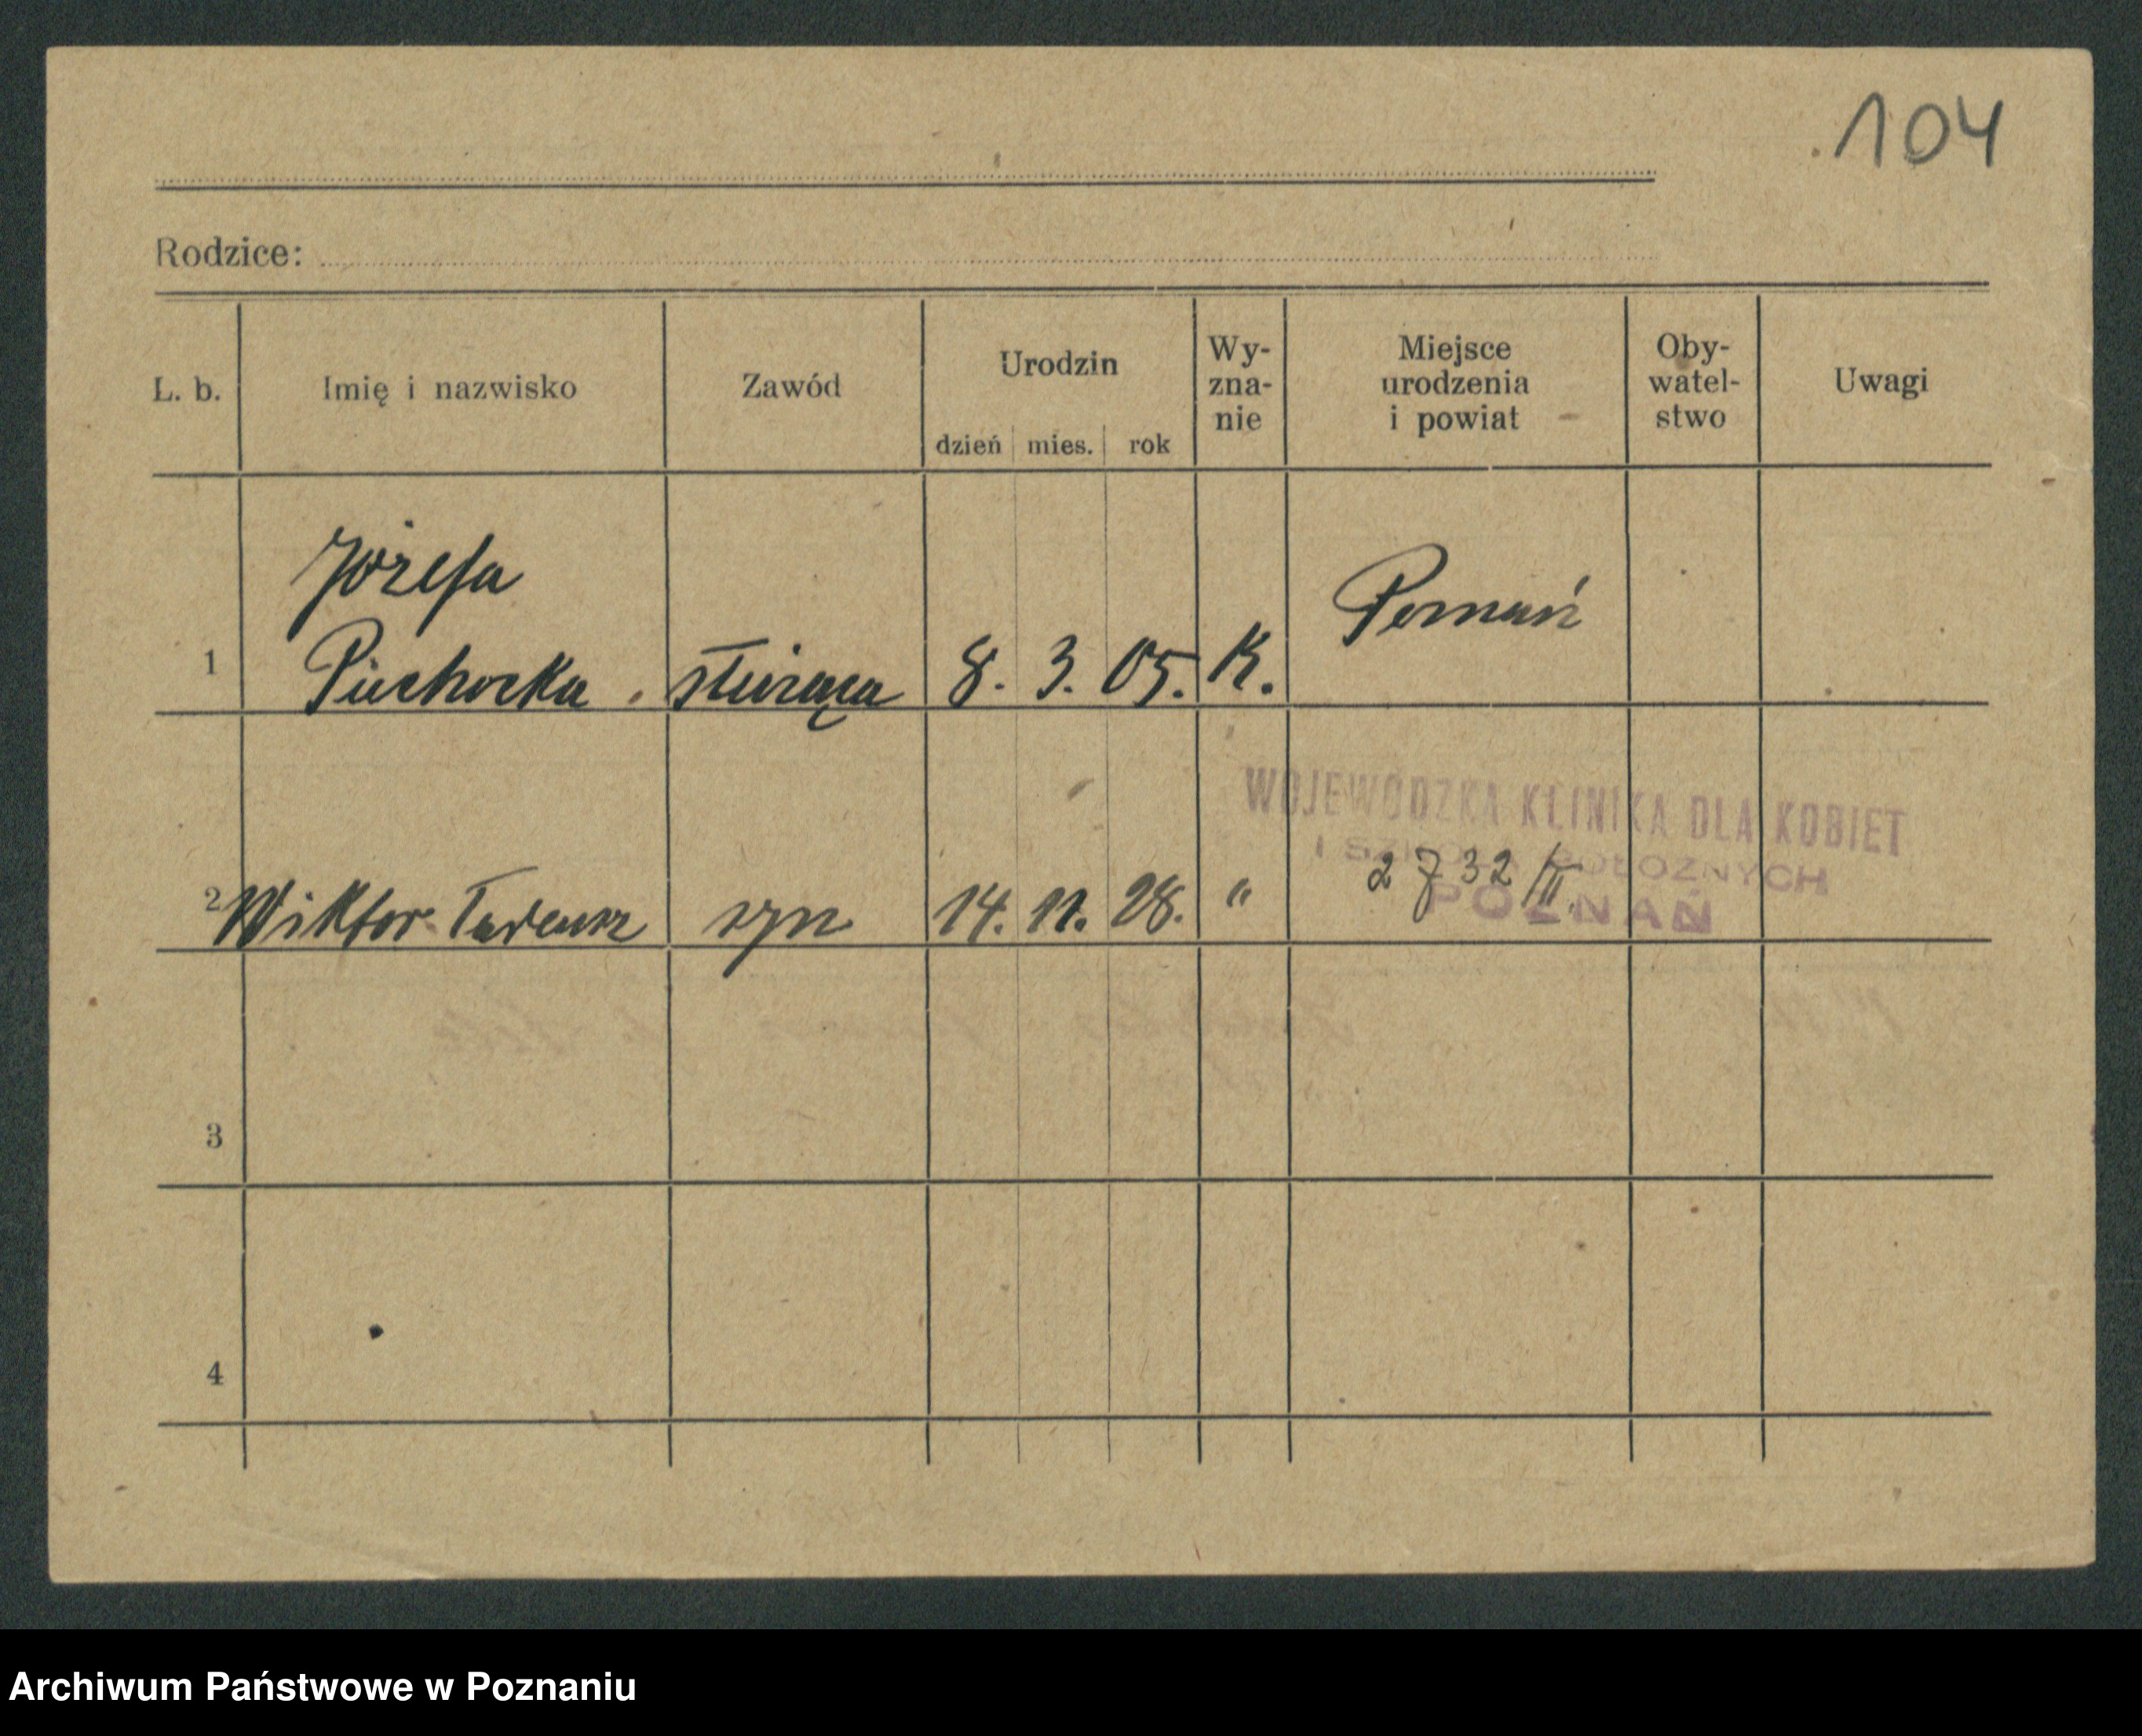 104
Rodzice:
L. b. Imię i nazwisko Zawód Urodzin dzień mies. rok Wy-zna-nie Miejsce urodzenia i powiat Oby-watel-stwo Uwagi
Józefa
Poznań
1 Piechocka służąca 8. 3. 05. K.
WOJEWÓDZKA KLINIKA DLA KOBIET
I SZKOŁA POŁOŻNYCH
2 Wiktor Tadeusz syn 14. 11. 28. " 2732/II
POZNAŃ
3
4
Archiwum Państwowe w Poznaniu